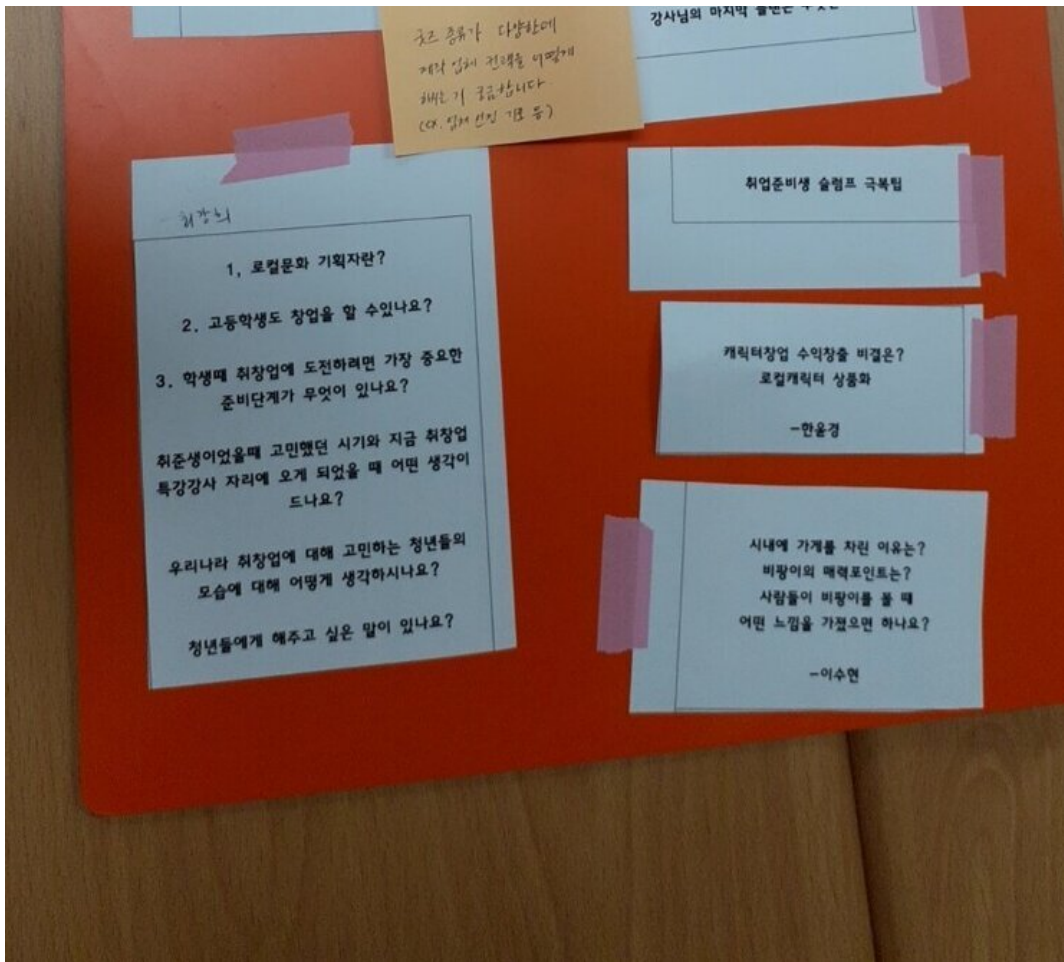 굿즈 종류가 다양한데
제작 업체 컨택을 어떻게
하는지 궁금합니다
(ex. 업체 선정 기준 등)
강사님의 마지막
취업준비생 슬럼프 극복팁
1, 로컬문화 기획자란?
2. 고등학생도 창업을 할 수있나요?
3. 학생때 취창업에 도전하려면 가장 중요한
준비단계가 무엇이 있나요?
취준생이었을때 고민했던 시기와 지금 취창업
특강강사 자리에 오게 되었을 때 어떤 생각이
드나요?
우리나라 취창업에 대해 고민하는 청년들의
모습에 대해 어떻게 생각하시나요?
청년들에게 해주고 싶은 말이 있나요?
캐릭터창업 수익창출 비결은?
로컬캐릭터 상품화
-한윤경
시내에 가게를 차린 이유는?
비팡이의 매력포인트는?
사람들이 비팡이를 볼 때
어떤 느낌을 가졌으면 하나요?
-이수현